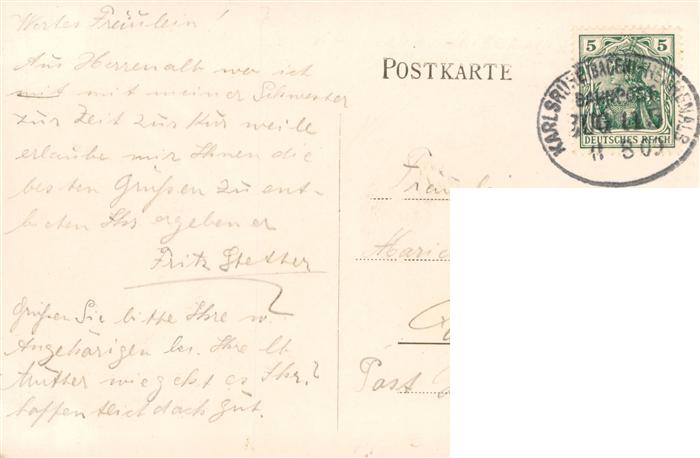 Wertes Fräulein!
Aus Herrenalb wo ich
mit mit meiner Schwester
zur Zeit zur Kur weile
erlaube mir Ihnen die
besten Grüßen zu ent-
bieten Ihr ergebener
Fritz Stetter
Grüßen Sie bitte Ihre w.
Angehörigen bes. Ihre lb.
Mutter wie geht es Ihr?
hoffentlich doch gut.
POSTKARTE
5 5
DEUTSCHES REICH
KARLSRUHE (BADEN)
BAHNPOST
ZUG
Fräulein
Marie
Post